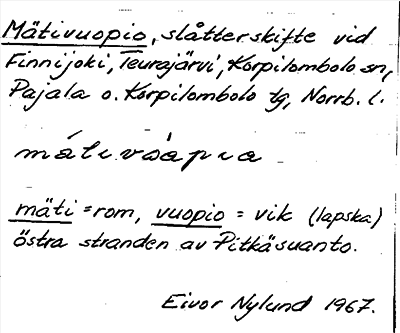 Mätivuopio, slåtterskifte vid
Finnijoki, Teurajärvi, Korpilombolo sn,
Pajala o. Korpilombolo tg, Norrb. l.
máti.vòápia
mäti = rom, vuopio = vik (lapska)
östra stranden av Pitkäsuanto.
Eivor Nylund 1967.